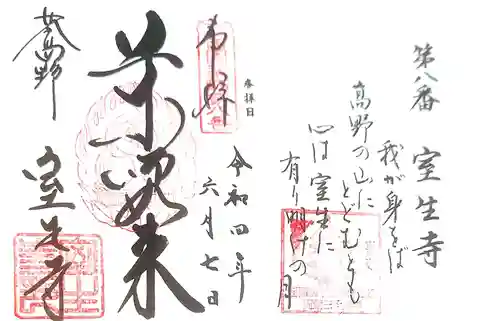 第八番 室生寺
我が身をば
高野の山に
とどむとも
心は室生に
有り明けの月
奉拝
参拝日
令和四年
六月七日
室生寺